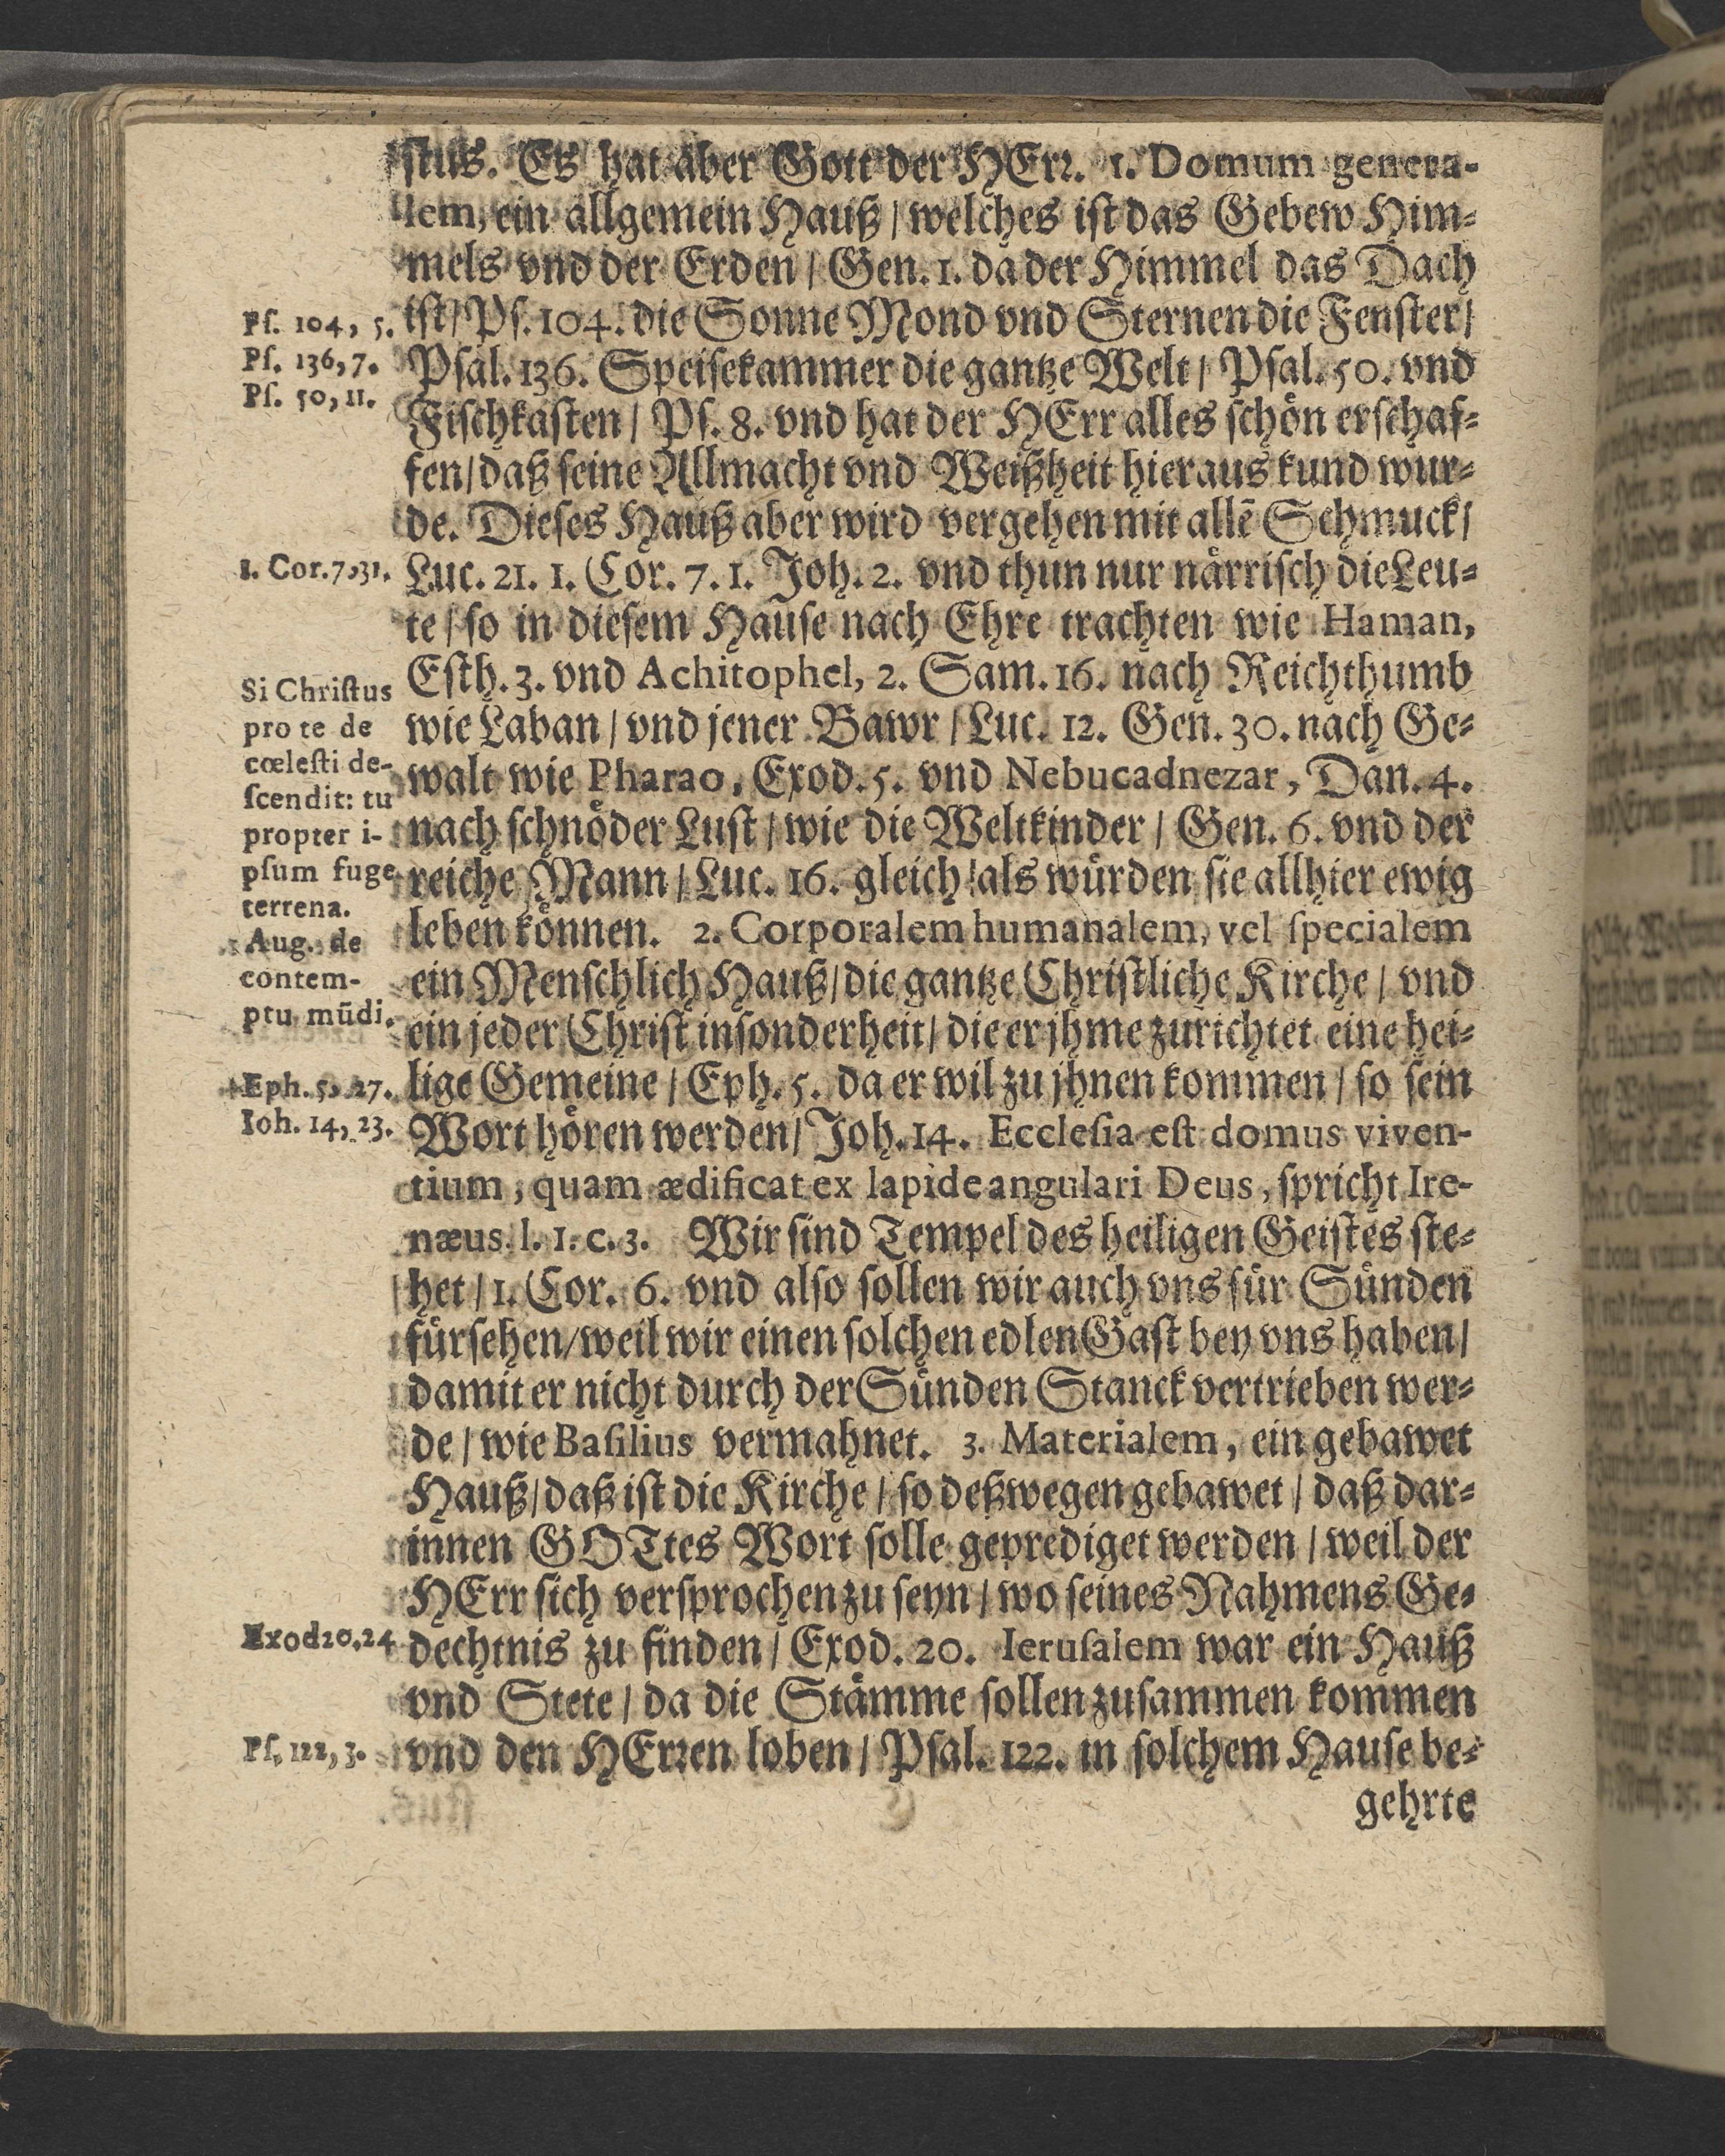 ſtus. Es hat aber Gott der HErꝛ. 1. Domum genera-
lem, ein allgemein Hauß / welches iſt das Gebew Him-
mels vnd der Erden / Gen. 1. da der Himmel das Dach
Pſ. 104, 5.
iſt / Pſ. 104. die Sonne Mond vnd Sternen die Fenſter /
Pſ. 136, 7.
Pſal. 136. Speiſekammer die gantze Welt / Pſal. 50. vnd
Pſ. 50, 11.
Fiſchkaſten / Pſ. 8. vnd hat der HErr alles ſchoͤn erſchaf-
fen / daß ſeine Allmacht vnd Weißheit hieraus kund wur-
de. Dieſes Hauß aber wird vergehen mit allē Schmuck /
1. Cor. 7, 31.
Luc. 21. 1. Cor. 7. 1. Joh. 2. vnd thun nur naͤrriſch die Leu-
te / ſo in dieſem Hauſe nach Ehre trachten wie Haman,
Eſth. 3. vnd Achitophel, 2. Sam. 16. nach Reichthumb
wie Laban / vnd jener Bawr / Luc. 12. Gen. 30. nach Ge-
walt wie Pharao, Exod. 5. vnd Nebucadnezar, Dan. 4.
nach ſchnoͤder Luſt / wie die Weltkinder / Gen. 6. vnd der
reiche Mann / Luc. 16. gleich / als wuͤrden ſie allhier ewig
leben koͤnnen. 2. Corporalem humanalem, vel ſpecialem
Si Chriſtus
pro te de
cœleſti de-
ſcendit: tu
propter i-
pſum fuge
terrena.
Aug. de
contem-
ptu mūdi.
ein Menſchlich Hauß / die gantze Chriſtliche Kirche / vnd
ein jeder Chriſt inſonderheit / die er jhme zurichtet eine hei-
Eph. 5, 27.
lige Gemeine / Eph. 5. da er wil zu jhnen kommen / ſo ſein
Ioh. 14, 23.
Wort hoͤren werden / Joh. 14. Eccleſia eſt domus viven-
tium, quam ædificat ex lapide angulari Deus, ſpricht Ire-
næus. l. 1. c. 3. Wir ſind Tempel des heiligen Geiſtes ſte-
het / 1. Cor. 6. vnd alſo ſollen wir auch vns fuͤr Suͤnden
fuͤrſehen / weil wir einen ſolchen edlen Gaſt bey vns haben /
damit er nicht durch der Suͤnden Stanck vertrieben wer-
de / wie Baſilius vermahnet. 3. Materialem, ein gebawet
Hauß / daß iſt die Kirche / ſo deßwegen gebawet / daß dar-
innen GOTtes Wort ſolle geprediget werden / weil der
HErr ſich verſprochen zu ſeyn / wo ſeines Nahmens Ge-
Exod 20, 24
dechtnis zu finden / Exod. 20. Ieruſalem war ein Hauß
vnd Stete / da die Staͤmme ſollen zuſammen kommen
Pſ. 122, 3.
vnd den HErꝛen loben / Pſal. 122. in ſolchem Hauſe be-
gehrte